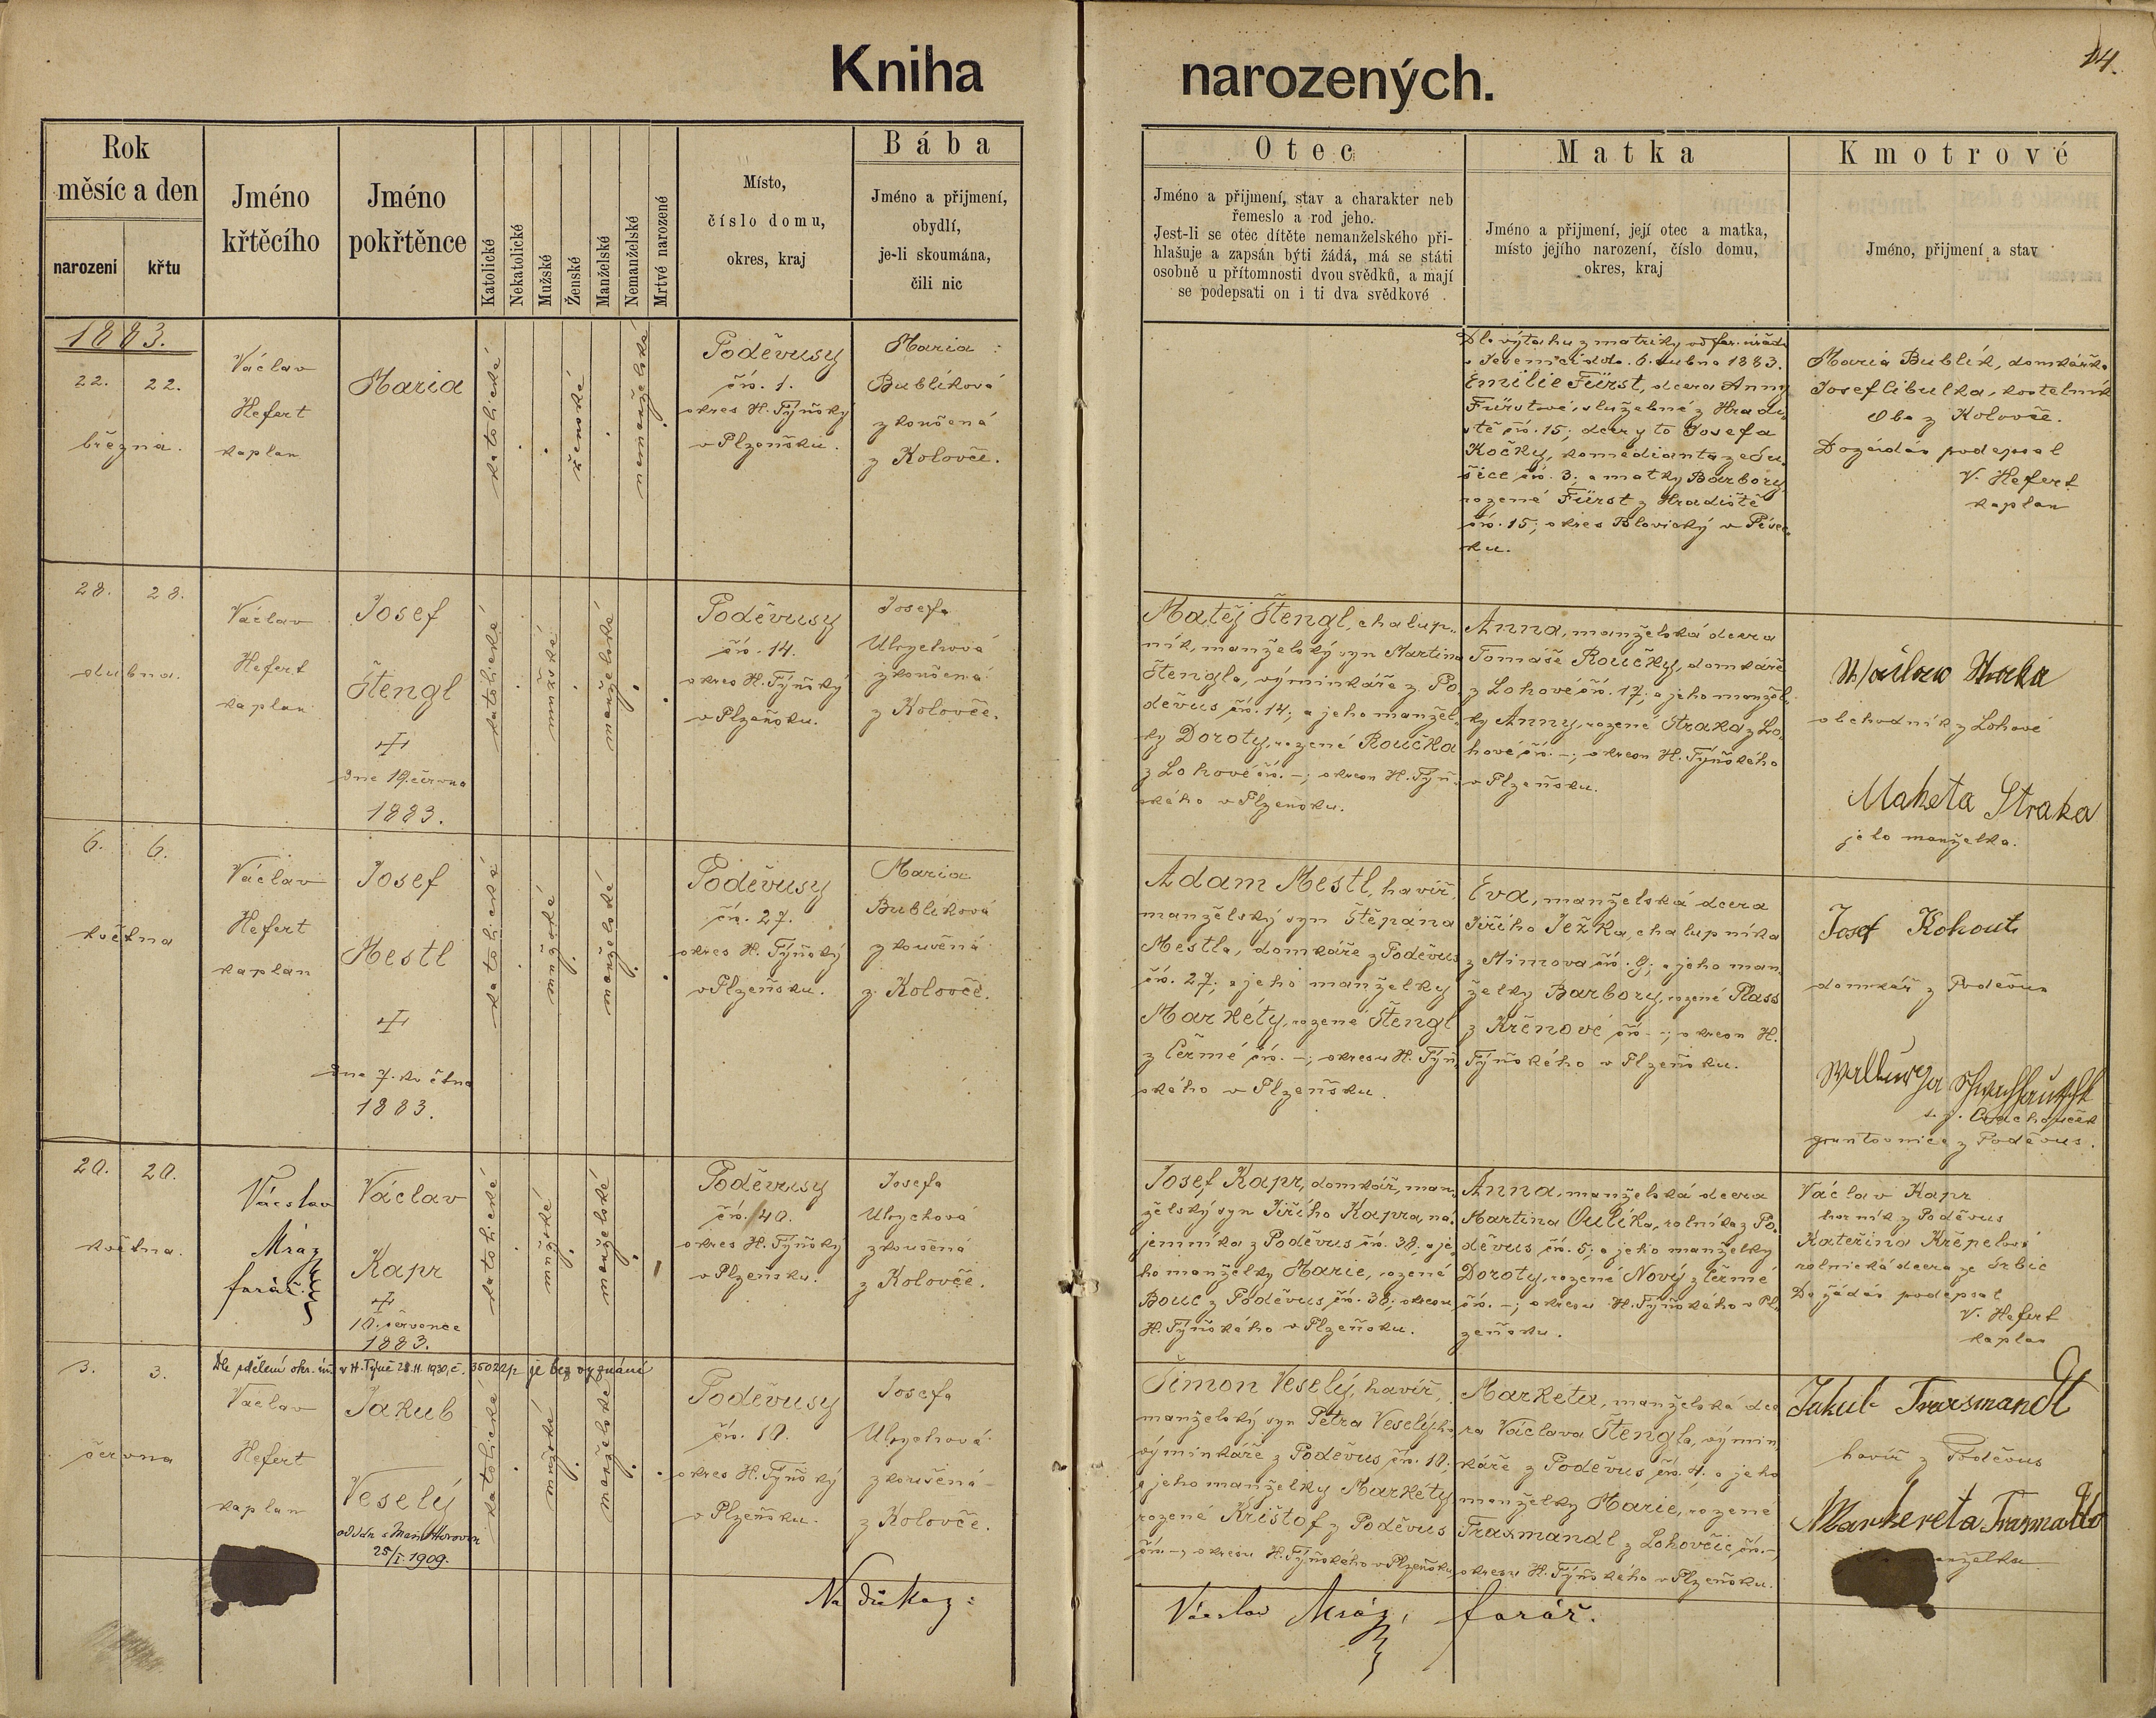 Kniha narozených.
14.
Rok
měsíc a den
narození křtu
Jméno
křtěcího
Jméno
pokřtěnce
Katolické
Nekatolické
Mužské
Ženské
Manželské
Nemanželské
Mrtvé narozené
Místo,
číslo domu,
okres, kraj
Bába
Jméno a přijmení,
obydlí,
je-li skoumána,
čili nic
Otec
Jméno a přijmení, stav a charakter neb
řemeslo a rod jeho.
Jest-li se otec dítěte nemanželského při-
hlašuje a zapsán býti žádá, má se státi
osobně u přítomnosti dvou svědků, a mají
se podepsati on i ti dva svědkové
Matka
Jméno a přijmení, její otec a matka,
místo jejího narození, číslo domu,
okres, kraj
Kmotrové
Jméno, přijmení a stav
1883.
22. 22.
března.
Václav
Hefert
kaplan
Maria
katolické
ženské
nemanželské
Poděvusy
čís. 1.
okres H. Týňský
v Plzeňsku.
Maria
Bublíková
zkoušená
z Kolovče.
Dle výtahu z matriky od far. úřadu
dto. 6. dubna 1883.
Emilie Fürst, dcera Anny
Fürstové, služebné z Hradi-
ště čís. 15; dcery to Josefa
Kočky, komedianta
čís. 3; a matky Barbory,
rozené Fürst z Hradiště
čís. 15; okres Blovický v Písec-
ku.
Maria Bublík, domkářka
Josef Cibulka, kostelník
Oba z Kolovče.
Dožádán podepsal
V. Hefert
kaplan
28. 28.
dubna.
Václav
Hefert
kaplan
Josef
Štengl
dne 19. června
1883.
katolické
mužské
manželské
Poděvusy
čís. 14.
okres H. Týňský
v Plzeňsku.
Josefa
Ulrychová
zkoušená
z Kolovče.
Matěj Štengl, chalup-
ník, manželský syn Martina
Štengla, výminkáře z Po-
děvus čís. 14; a jeho manžel-
ky Doroty, rozené Roučka
z Lohové čís. –; okresu H. Týň-
ského v Plzeňsku.
Anna, manželská dcera
Tomáše Roučky, domkáře
z Lohové čís. 17; a jeho manžel-
ky Anny, rozené Straka z Lo-
hové čís. –; okresu H. Týňského
v Plzeňsku.
obchodník z Lohové
Maketa Straka
jeho manželka.
6. 6.
května
Václav
Hefert
kaplan
Josef
Mestl
dne 7. května
1883.
katolické
mužské
manželské
Poděvusy
čís. 27.
okres H. Týňský
v Plzeňsku.
Maria
Bublíková
zkoušená
z Kolovče.
Adam Mestl, havíř,
manželský syn Štěpána
Mestla, domkáře z Poděvus
čís. 27; a jeho manželky
Markéty, rozené Štengl
z Čermé čís. –; okresu H. Týň-
ského v Plzeňsku.
Eva, manželská dcera
Jiřího Ježka, chalupníka
z Mimova čís. 9; a jeho man-
želky Barbory, rozené Plass
z Křenové čís. –; okresu H.
Týňského v Plzeňsku.
Josef Kohout
domkář z Poděvus
Wallburga
gruntovnice z Poděvus.
20. 20.
května.
Vácslav
Mráz
farář.
Václav
Kapr
10. července
1883.
katolické
mužské
manželské
Poděvusy
čís. 40.
okres H. Týňský
v Plzeňsku.
Josefa
Ulrychová
zkoušená
z Kolovče.
Josef Kapr, domkář, man-
želský syn Jiřího Kapra, ná-
jemníka z Poděvus čís. 38; a je-
ho manželky Marie, rozené
Bouc z Poděvus čís. 38; okresu
H. Týňského v Plzeňsku.
Anna, manželská dcera
Martina Oulíka, rolníka z Po-
děvus čís. 5; a jeho manželky
Doroty, rozené Nový z Čermé
čís. –; okresu H. Týňského v Pl-
zeňsku.
Václav Kapr
horník z Poděvus
Kateřina Křepelová
rolnická dcera ze Srbic
Dožádán podepsal
V. Hefert
kaplan
3. 3.
června
Dle sdělení okr. úř. v H. Týně 28.11.1930, č. 35022 je bez vyznání
Václav
Hefert
kaplan
Jakub
Veselý
25/I. 1909.
katolické
mužské
manželské
Poděvusy
čís. 10.
okres H. Týňský
v Plzeňsku.
Josefa
Ulrychová
zkoušená
z Kolovče.
Šimon Veselý, havíř,
manželský syn Petra Veselých,
výminkáře z Poděvus čís. 10;
a jeho manželky Markéty
rozené Krištof z Poděvus
čís. –; okresu H. Týňského v Plzeňsku,
Markéta, manželská dce-
ra Václava Štengla, výmin-
káře z Poděvus, čís. 4. a jeho
manželky Marie, rozené
Traxmandl z Lohovčic čís. –,
okresu H. Týňského v Plzeňsku.
Jakub Traxsmandl
havíř z Poděvus
Markereta
manželka
Na důkaz:
Vácslav Mráz, farář.